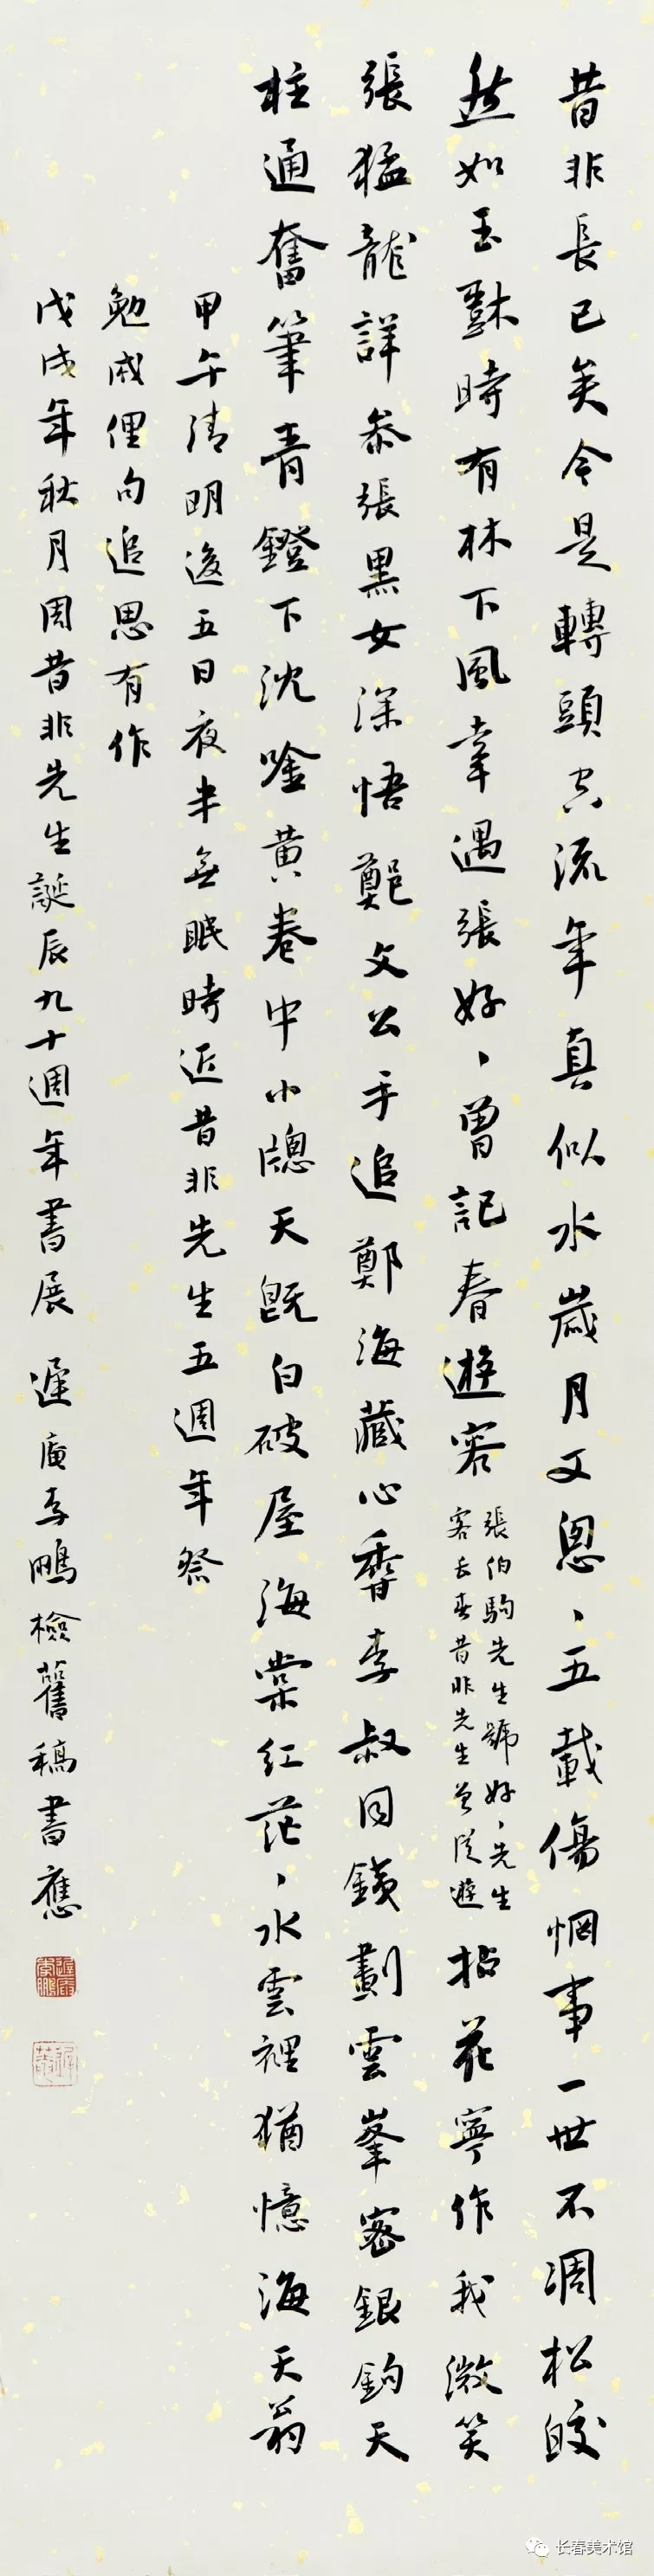 昔非長已矣今是轉頭空流年真似水歲月又恩、五載傷惘事一世不凋松皎
然如玉龢時有林下風幸遇張好、曾記春遊客
張伯駒先生號好、先生
客長春昔非先生曾從遊
拈花寧作我微笑
張猛龍詳參張黑女深悟鄭文公手追鄭海藏心香李叔同鐵劃雲峯密銀鉤天
柱通奮筆青鐙下沈唫黃卷中小牕天既白破屋海棠紅茫、水雲裡猶憶海天翁
甲午清明後五日夜半無眠時近昔非先生五週年祭
勉成俚句追思有作
戊戌年秋月周昔非先生誕辰九十週年書展 遲庵李鵬檢舊稿書應
长春美术馆